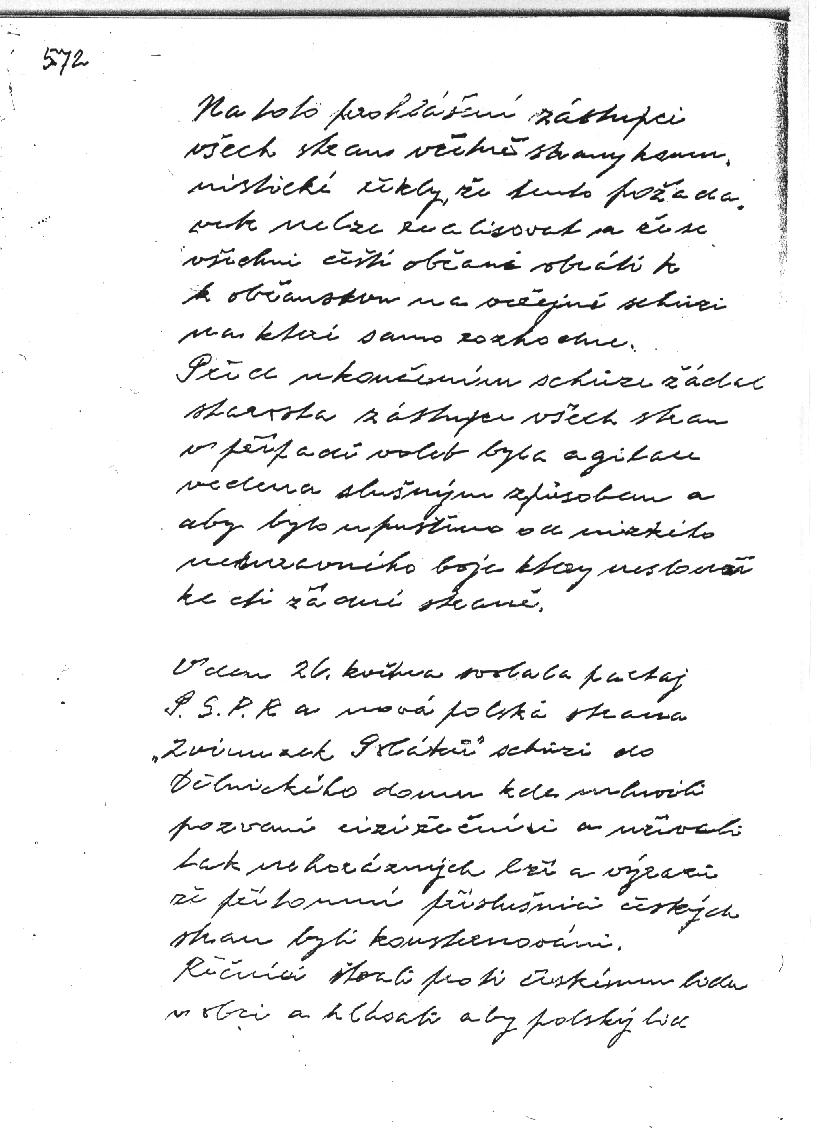 572
Na toto prohlášení zástupci
všech stran včetně strany komu,
nistické řekly, že tento požada,
vek nelze realisovat a že se
všichni čeští občané obrátí k
k občanstvu na veřejné schůzi
na které samo rozhodne.
Před ukončením schůze žádal
starosta zástupce všech stran
v případě voleb byla agitace
vedena slušným způsobem a
aby bylo upuštěno od nízkého
nemravného boje který neslouží
ke cti žádné straně.
V den 26. května svolala partaj
P.S.P.R a nová polská strana
„Zvíunzek Poláků" schůzi do
Dělnického domu kde mluvili
pozvaní cizí řečníci a užívali
tak nehorázných lží a výrazů
že přítomní příslušníci českých
stran byli konsternováni.
Řečníci štvali proti českému lidu
v obci a hlásali aby polský lid